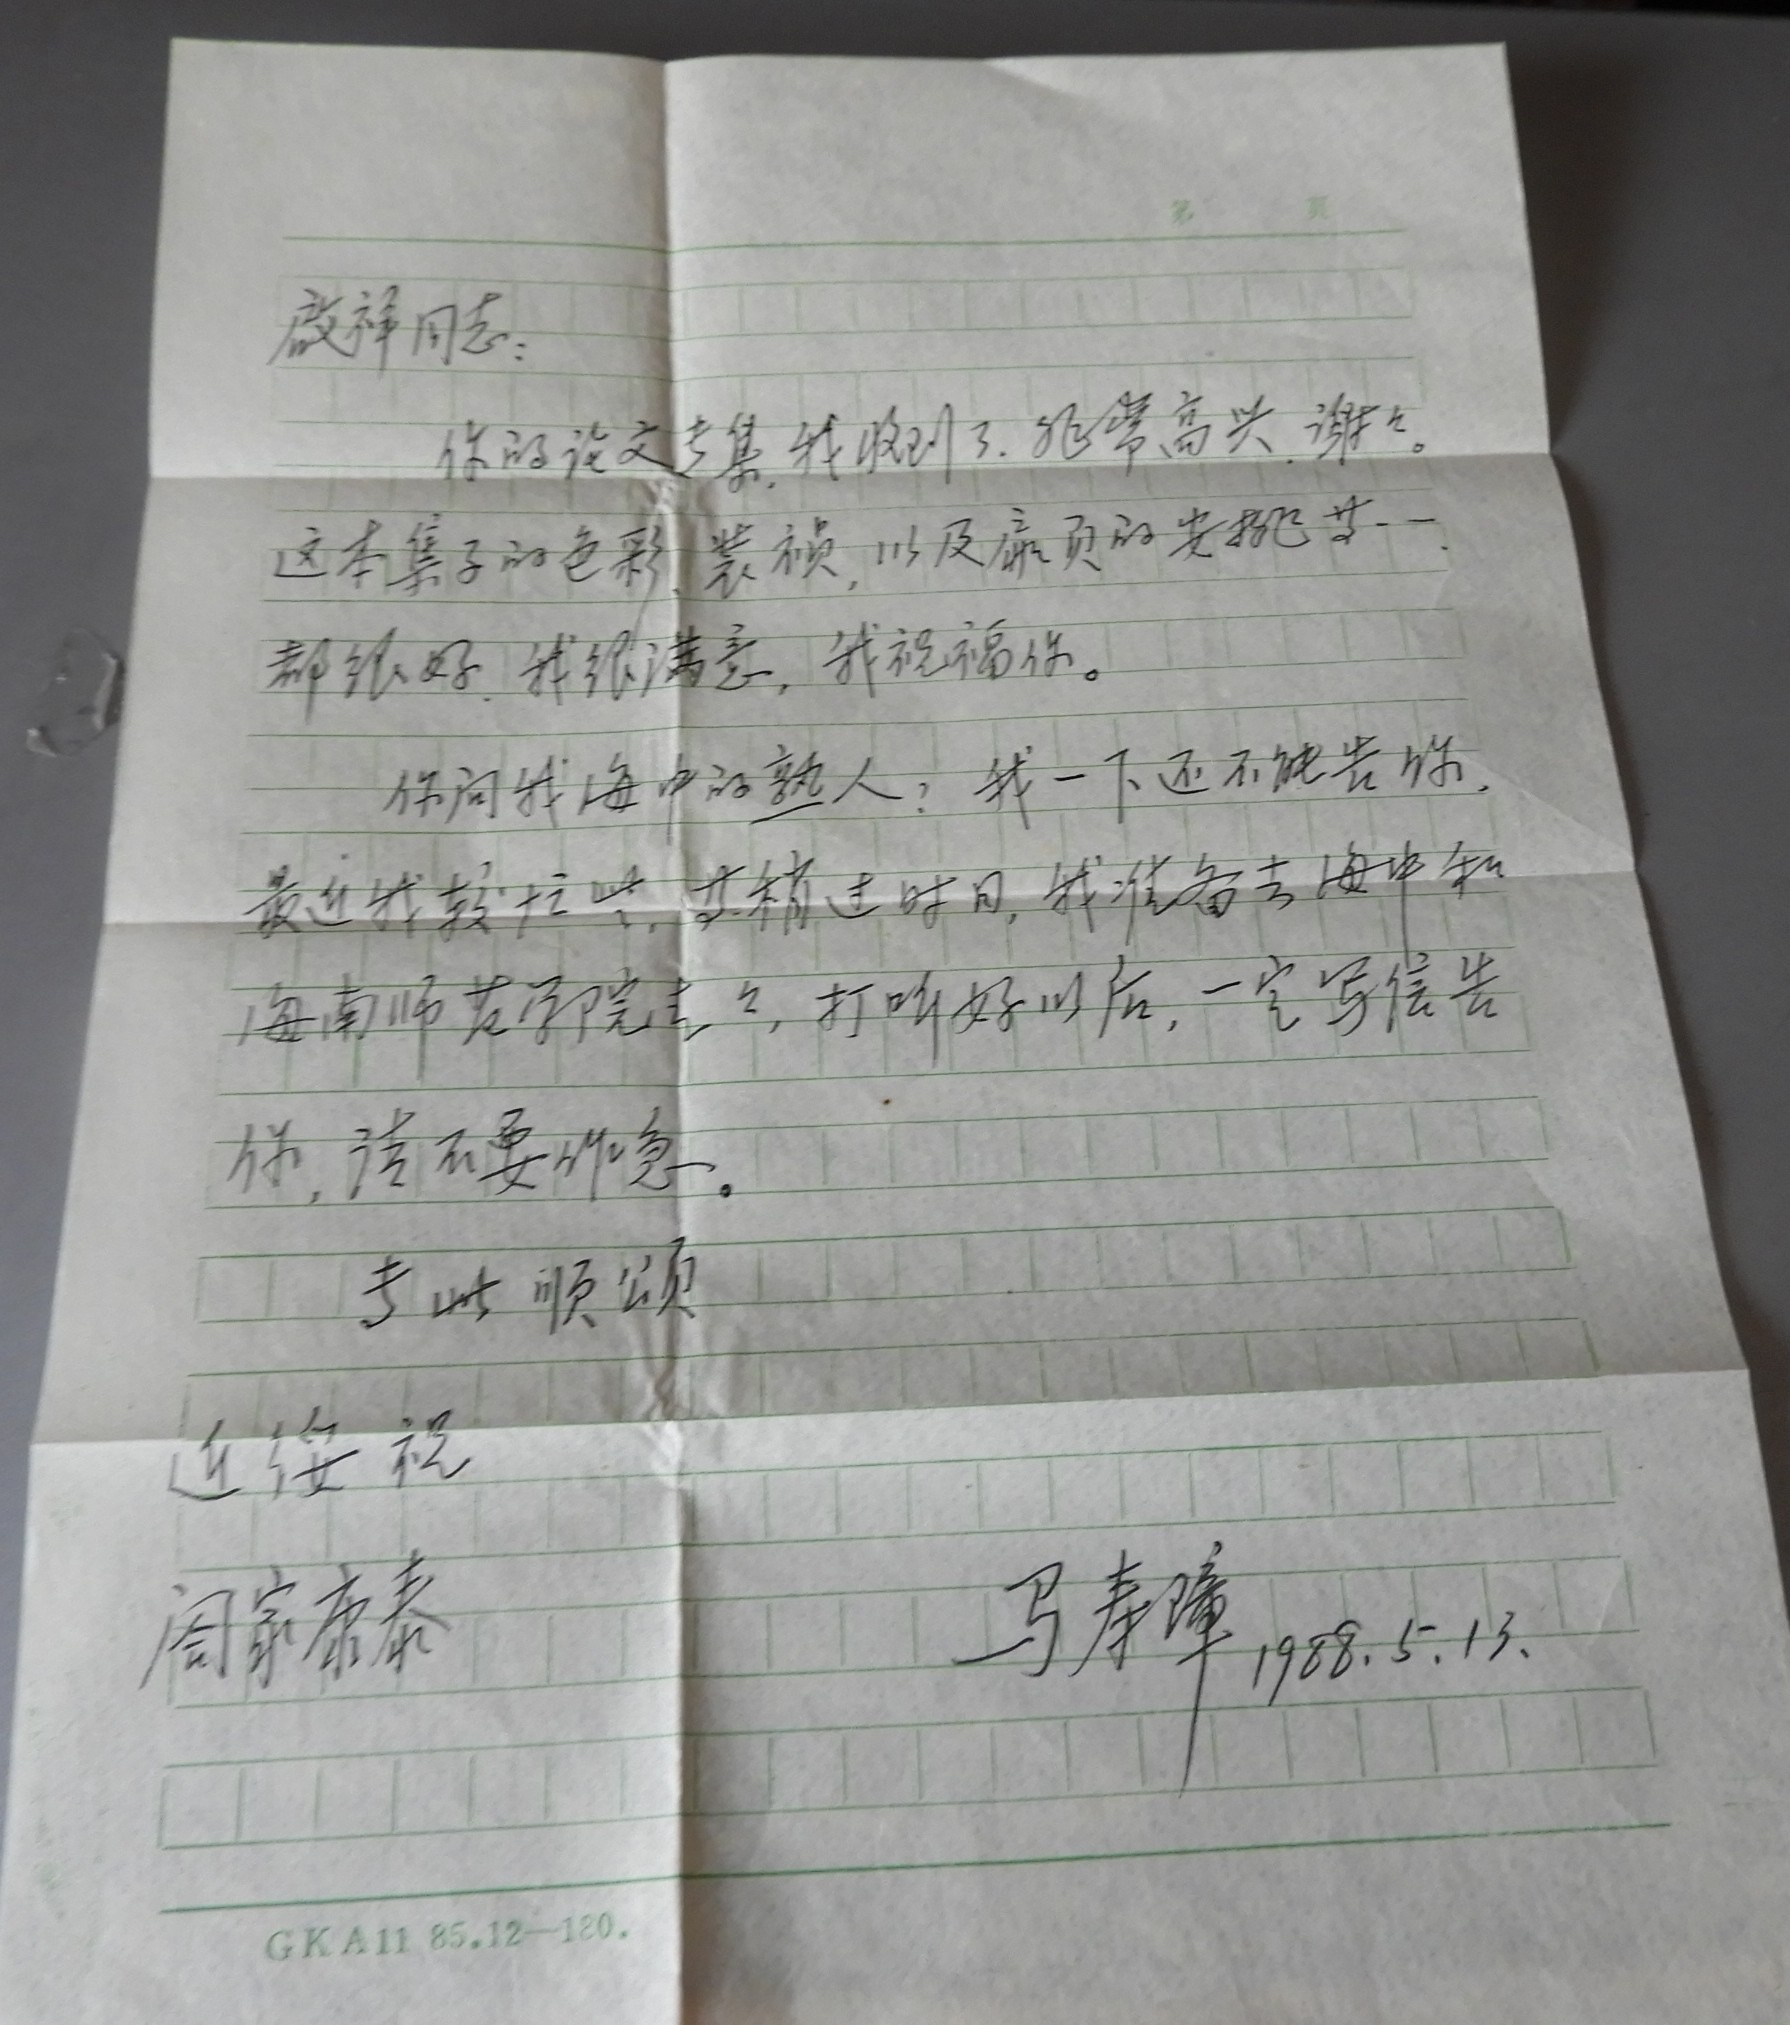 第 页
启祥同志:
你的论文专集,我收到了.非常高兴.谢々。
这本集子的色彩、装祯,以及扉页的安排等一一.
都很好.我很满意,我祝福你。
你问我海中的熟人;我一下还不能告你.
最近我较忙些,等稍过时日,我准备去海中和
海南师范学院走々,打听好以后,一定写信告
你,请不要作急。
专此顺颂
近绥 祝
阖家康泰
马寿障 1988.5.13.
GKA11 85.12—180.